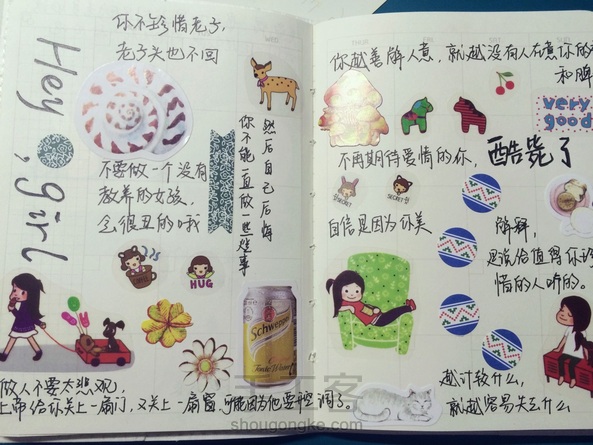 Hey, girl
你不珍惜老子,
老子头也不回
不要做一个没有
教养的女孩,
会很丑的哦
然后自己后悔
你不能一直做一些难事
HUG
Schweppes
Tonic Water
做人不要太悲观,
上帝给你关上一扇门,又关上一扇窗,可能因为他要开空调了。
你越善解人意,就越没有人在意你的
和脾
very
good
不再期待爱情的你,酷毙了
SECRET
SECRET
自信是因为你美
解释,
是说给值得你珍
惜的人听的。
越计较什么,
就越容易失去什么
手工客
shougongke.com